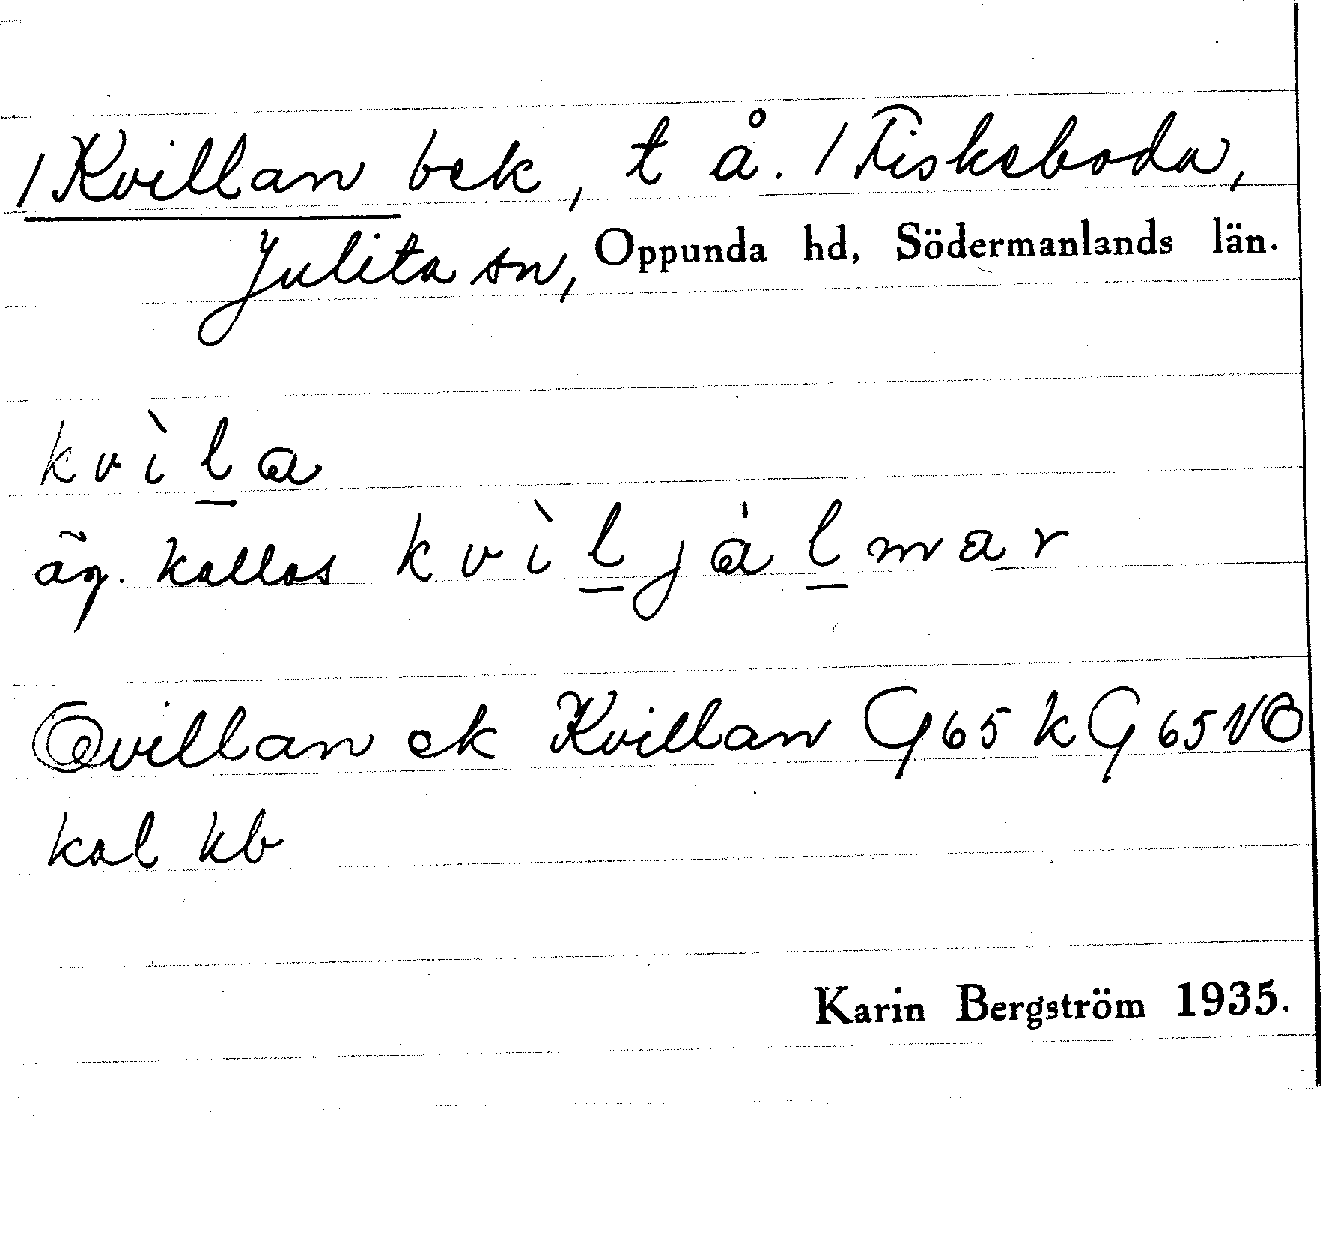 /Kvillan bek, t å. /Fiskeboda,
Julita sn, Oppunda hd, Södermanlands län.
kvìl̲a
äg. kallas kvìl̲jál̲mar
Qvillan ek Kvillan G65 k G65 VO
kal kb
Karin Bergström 1935.